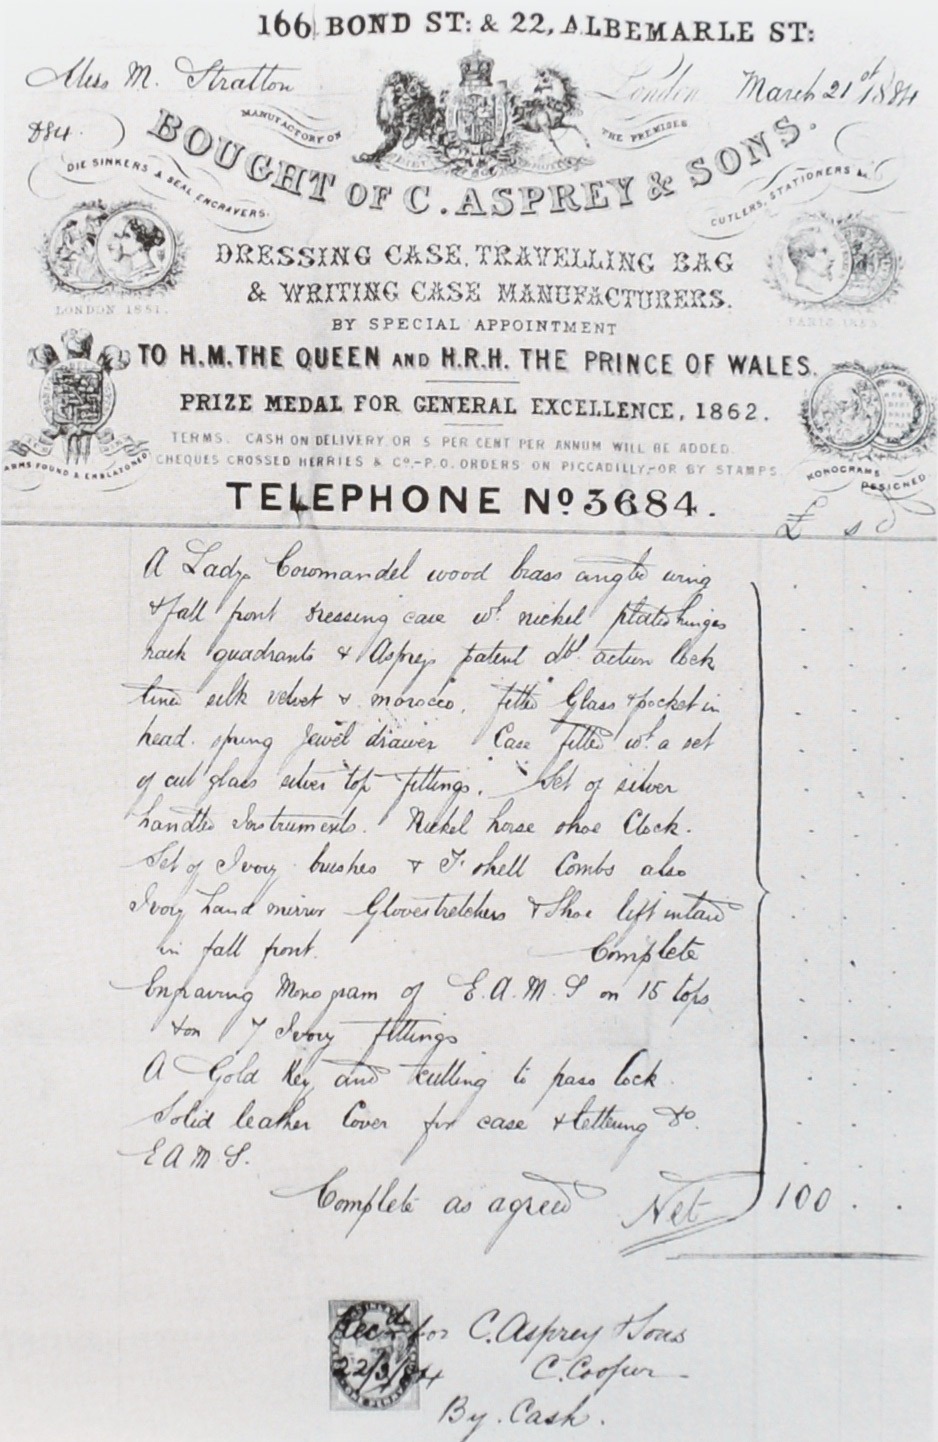 166 BOND ST: & 22, ALBEMARLE ST:
Miss M. Stratton
London March 21st 1884
D84.
MANUFACTORY ON THE PREMISES
BOUGHT OF C. ASPREY & SONS.
DIE SINKERS & SEAL ENGRAVERS.
CUTLERS, STATIONERS &c
DRESSING CASE, TRAVELLING BAG
& WRITING CASE MANUFACTURERS.
LONDON 1851.
PARIS 1855.
BY SPECIAL APPOINTMENT
TO H.M. THE QUEEN AND H.R.H. THE PRINCE OF WALES.
PRIZE MEDAL FOR GENERAL EXCELLENCE, 1862.
TERMS. CASH ON DELIVERY OR 5 PER CENT PER ANNUM WILL BE ADDED.
CHEQUES CROSSED HERRIES & Co.-P.O. ORDERS ON PICCADILLY,-OR BY STAMPS.
ARMS FOUND & EMBLAZONED
MONOGRAMS DESIGNED.
TELEPHONE No 3684.
£ s d
A Ladys Coromandel wood brass angled wing
& fall front dressing case wt. nickel plated hinges
rack quadrants & Aspreys patent dbl. action lock
lined silk velvet & morocco. fitted Glass & pocket in
head. spring Jewel drawer Case fitted wt. a set
of cut glass silver top fittings. Set of silver
handled Instruments. Nickel horse shoe Clock.
Set of Ivory brushes & T. shell Combs also
Ivory hand mirror Glovestretchers & Shoe lift
in fall front. Complete
Engraving Monogram of E.A.M.S on 15 tops
& on 7 Ivory fittings
A Gold Key and cutting to pass lock
Solid leather Cover for case & lettering do.
E A M S.
Complete as agreed Net 100 . .
Recd for C. Asprey & Sons
22/3/84 C. Cooper
By Cash.